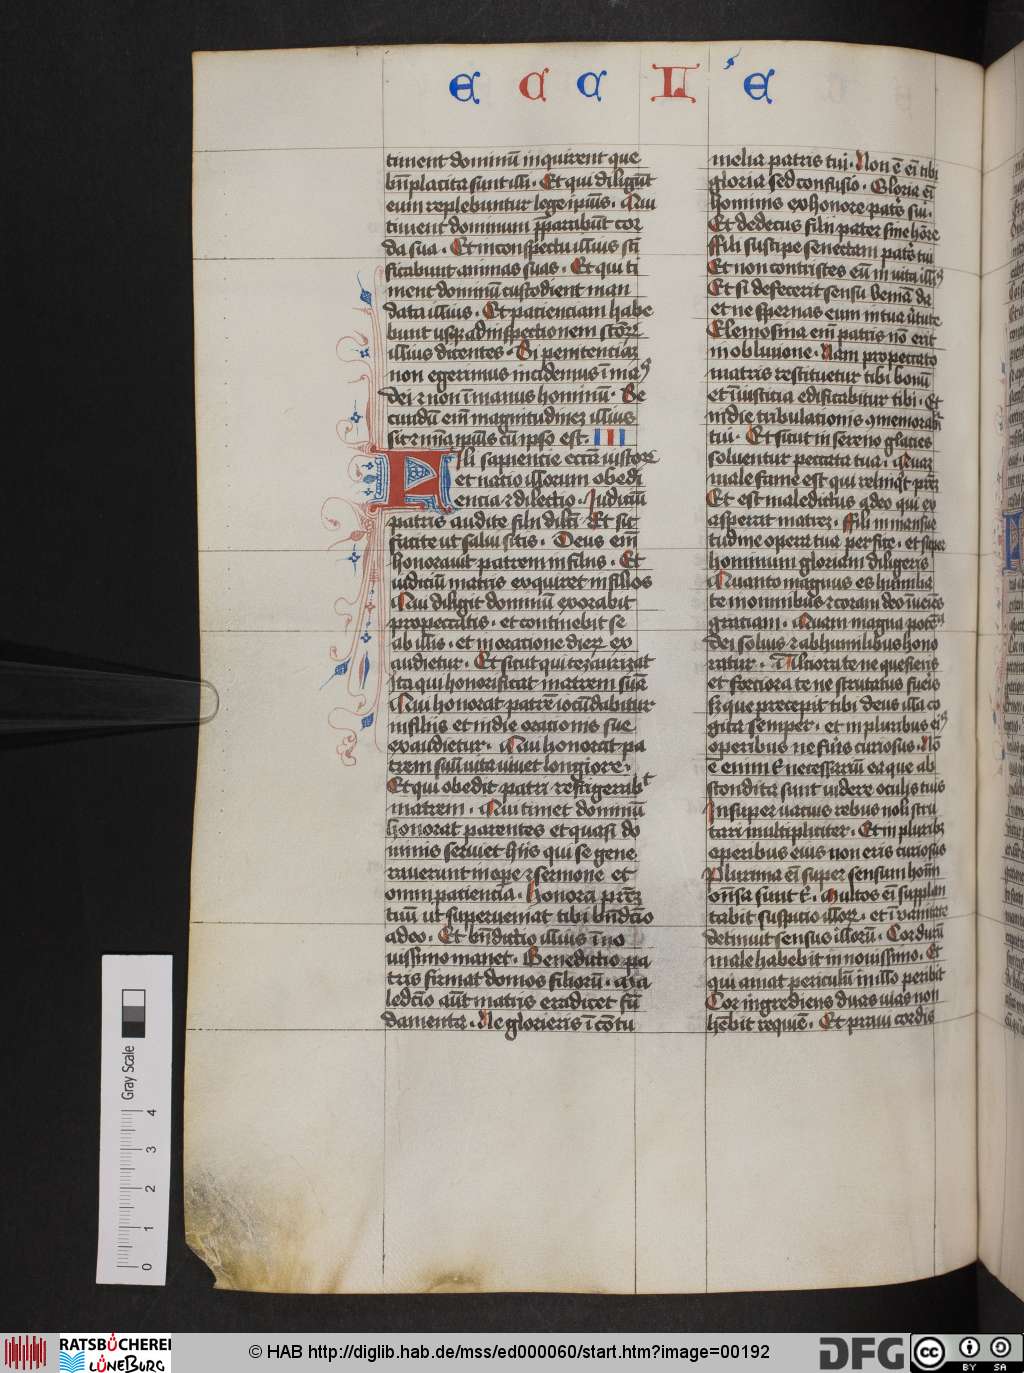 E C C L' E
timent dominū inquirent que
bn̄placita sunt illi . Et qui diligūt
eum replebuntur lege ipius . Qui
timent dominum p̄parabūt cor
da sua . Et in conspectu illius sc̄i
ficabunt animas suas . Et qui ti
ment dominū custodient man
data illius . Et pacienciam habe
bunt usqȝ ad inspectionem
illius dicentes . Si penitenciā
non egerimus incidemus ī maꝰ
dei ⁊ non ī manus hominū . Se
cundū em̄ magnitudineȝ illius
sic ⁊ mīa ipius cū ipso est . III
Filii sapiencie ecc̄ia iustoꝝ
et natio illorum obedi
encia ⁊ dilectio . Iudiciū
patris audite filii dilc̄i ⁊ sic
facite ut salui sitis . Deus em̄
honorauit patrem in filiis . Et
iudiciū matris exquiret in filios
Qui diligit dominū exorabit
pro peccatis . et continebit se
ab illis . et in oratione dieꝝ ex
audietur . Et sicut qui tezaurizat
ita qui honorificat matrem suā
Qui honorat patrē iocūdabitur
in filiis et in die orationis sue
exaudietur . Qui honorat pa
trem suū uita uiuet longiore .
Et qui obedit patri refrigerabᵗ
matrem . Qui timet dominū
honorat parentes et quasi do
minis seruiet hiis qui se gene
rauerunt in ope ⁊ sermone et
omni paciencia . Honora patreȝ
tuū ut superueniat tibi bn̄dcīo
a deo . Et bn̄dictio illius ī no
uissimo manet . Benedictio pa
tris firmat domos filiorū . Ma
ledcīo aūt matris eradicet fū
damenta . Ne glorieris ī cōtu
melia patris tui . Non ē eī tibi
gloria sed confusio . Gloria eī
hominis ex honore patris sui .
Et dedecus filii pater sine hōre
Fili suscipe senectam patris tui
Et non contristes eū in uita illiꝰ
Et si defecerit sensu veniā da
et ne spernas eum in tua ūtute
Elemosina em̄ patris nō erit
in obliuione . Nam pro peccato
matris restituetur tibi bonū
et ī iusticia edificabitur tibi . Et
in die tribulationis ꝯmemorabᵗ
tui . Et sicut in sereno glacies
soluentur peccata tua . Quaȝ
male fame est qui relinqt prēȝ
Et est maledictus a deo qui ex
asperat matreȝ . Fili in mansue
tudine opera tua perfice . et super
hominum gloriam diligeris
Quanto magnus es humilia
te in omnibus ⁊ coram deo īueies
graciam . Quam magna potēs
dei solus ⁊ ab humilibus hono
ratur . Altiora te ne quesieris
et forciora te ne scrutatus fueis
sꝫ que precepit tibi deus illa co
gita semper . et in pluribus eiꝰ
operibus ne fuis curiosus . Nō
ē enim tˡ necessariū ea que ab
scondita sunt uidere oculis tuis
In super uacuis rebus noli scru
tari multipliciter . Et in pluribȝ
operibus eius non eris curiosus
Plurima eī super sensum hoīm
on̄sa sunt tˡ . Multos eī supplan
tabit suspicio illoꝝ . et ī vanitate
detinuit sensus illorū . Cor durū
male habebit in nouissimo . Et
qui amat periculū in illo peribit
Cor ingrediens duas uias non
hēbit requiē . Et praui cordis
Gray Scale
0 1 2 3 4
RATSBÜCHEREI
LÜNEBURG
© HAB http://diglib.hab.de/mss/ed000060/start.htm?image=00192
DFG
cc BY SA